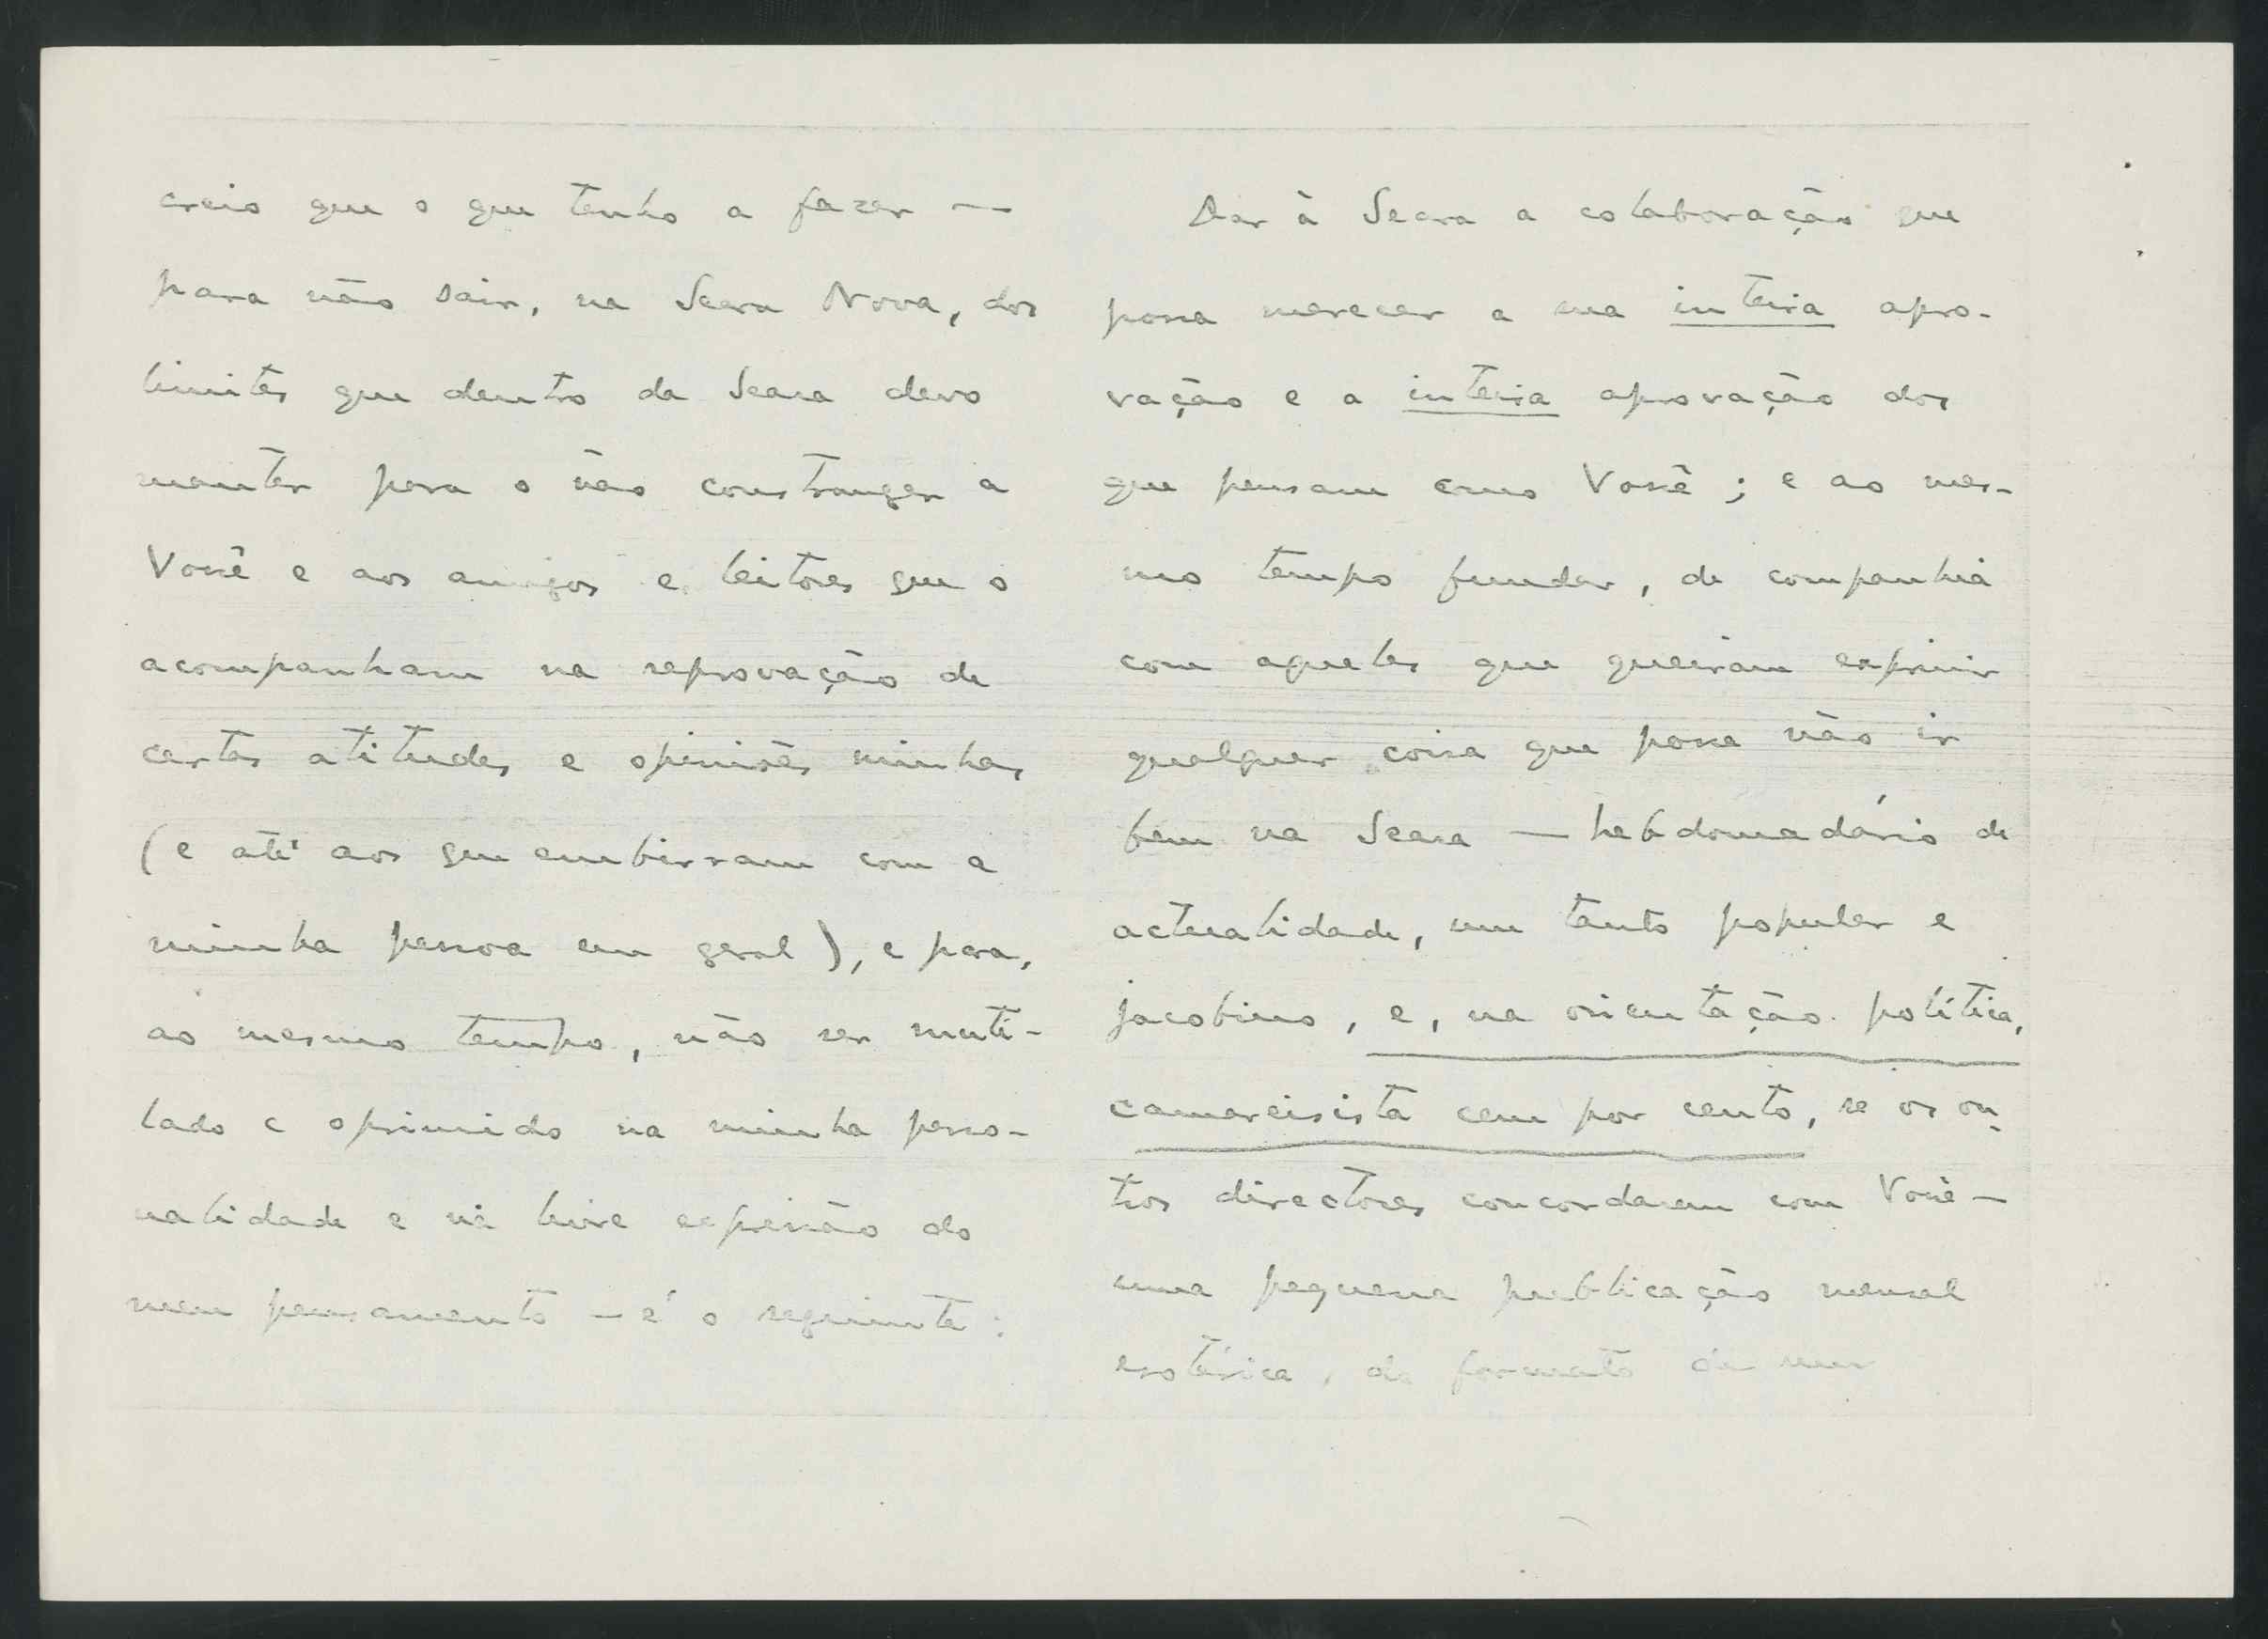 creio que o que tenho a fazer —
para não sair, na Seara Nova, dos
limites que dentro da Seara devo
manter para o não constranger a
Você e aos amigos e leitores que o
acompanham na reprovação de
certas atitudes e opiniões minhas
(e até aos que embirram com a
minha pessoa em geral), e para,
ao mesmo tempo, não ser muti-
lado e oprimido na minha perso-
nalidade e na livre expressão do
meu pensamento — é o seguinte:
Dar à Seara a colaboração que
possa merecer a sua inteira apro-
vação e a inteira aprovação dos
que pensam como Você; e ao mes-
mo tempo fundar, de companhia
com aqueles que queiram exprimir
qualquer coisa que possa não ir
bem na Seara — hebdomadário de
actualidade, um tanto popular e
jacobino, e, na orientação política,
camareisista cem por cento, se os ou-
tros directores concordarem com Você —
uma pequena publicação mensal
esotérica, do formato de um